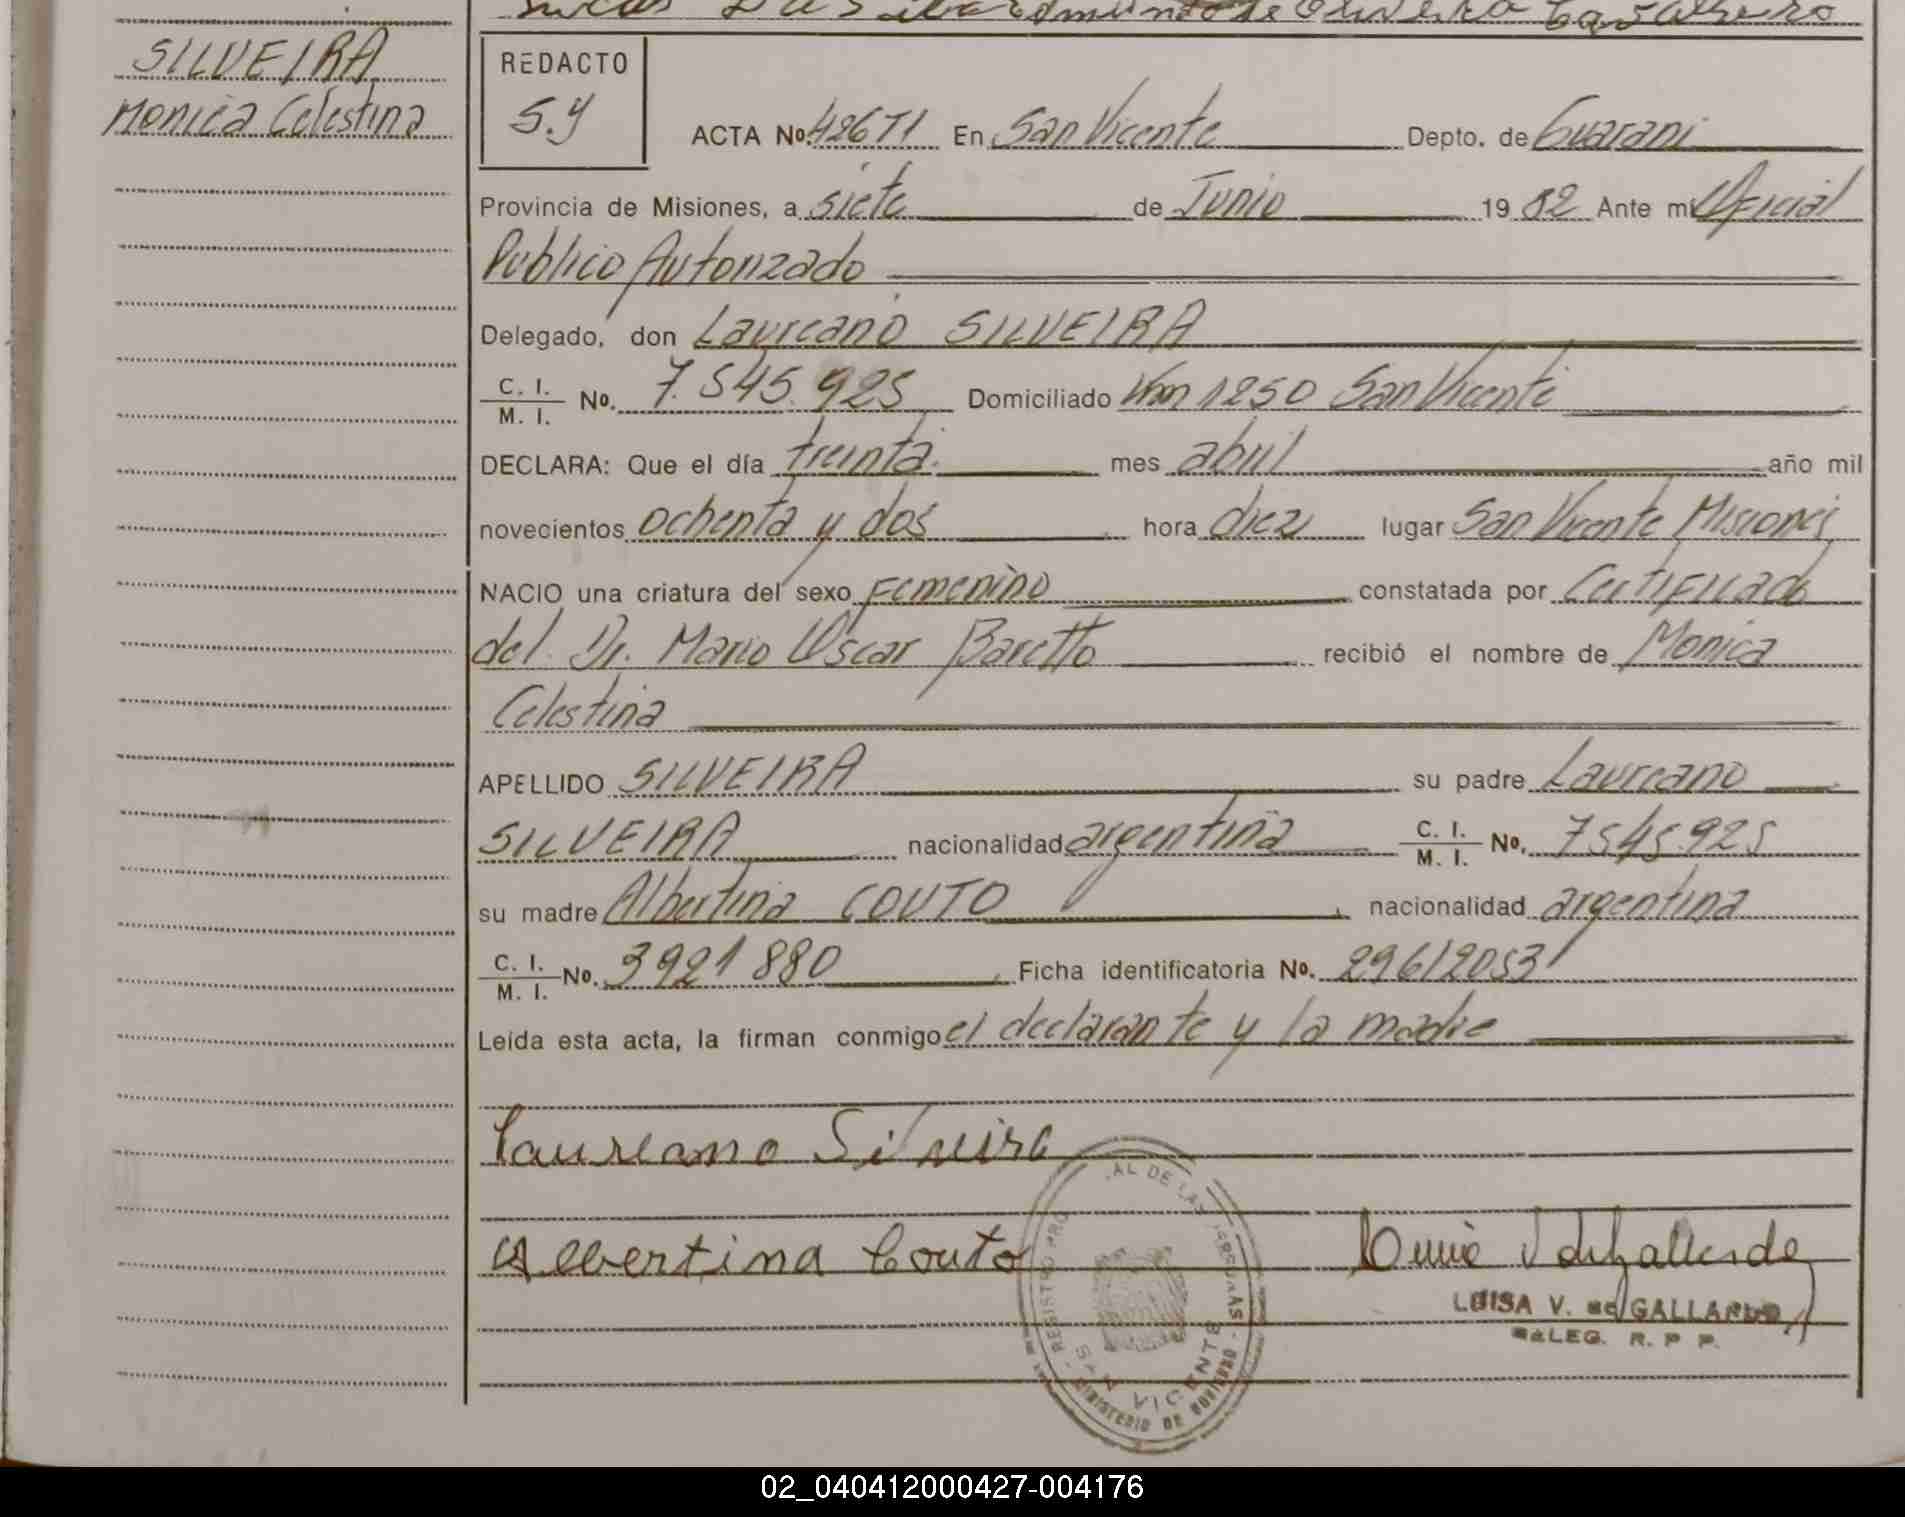 SILVEIRA
Monica Celestina
REDACTO
S.Y
ACTA No. 426 T1 En San Vicente Depto. de Guarani
Provincia de Misiones, a siete de Junio 19 82 Ante mi Oficial
Publico Autorizado
Delegado, don Laureano SILVEIRA
C. I. / M. I. No. 7.545.925 Domiciliado Km 1250 San Vicente
DECLARA: Que el día treinta mes abril año mil
novecientos ochenta y dos hora diez lugar San Vicente Misiones
NACIO una criatura del sexo Femenino constatada por Certificado
del Dr. Mario Oscar Baretto recibió el nombre de Monica
Celestina
APELLIDO SILVEIRA su padre Laureano
SILVEIRA nacionalidad argentina C. I. / M. I. No. 7545.925
su madre Albertina COUTO nacionalidad argentina
C. I. / M. I. No. 3921880 Ficha identificatoria No. 296/2053
Leída esta acta, la firman conmigo el declarante y la madre
Laureano Silveira
Albertina Couto
LUISA V. de GALLARDO
DELEG. R. P. P.
REGISTRO PRO AL DE LAS PERSONAS
SAN VICENTE
MINISTERIO DE GOBIERNO
02_040412000427-004176